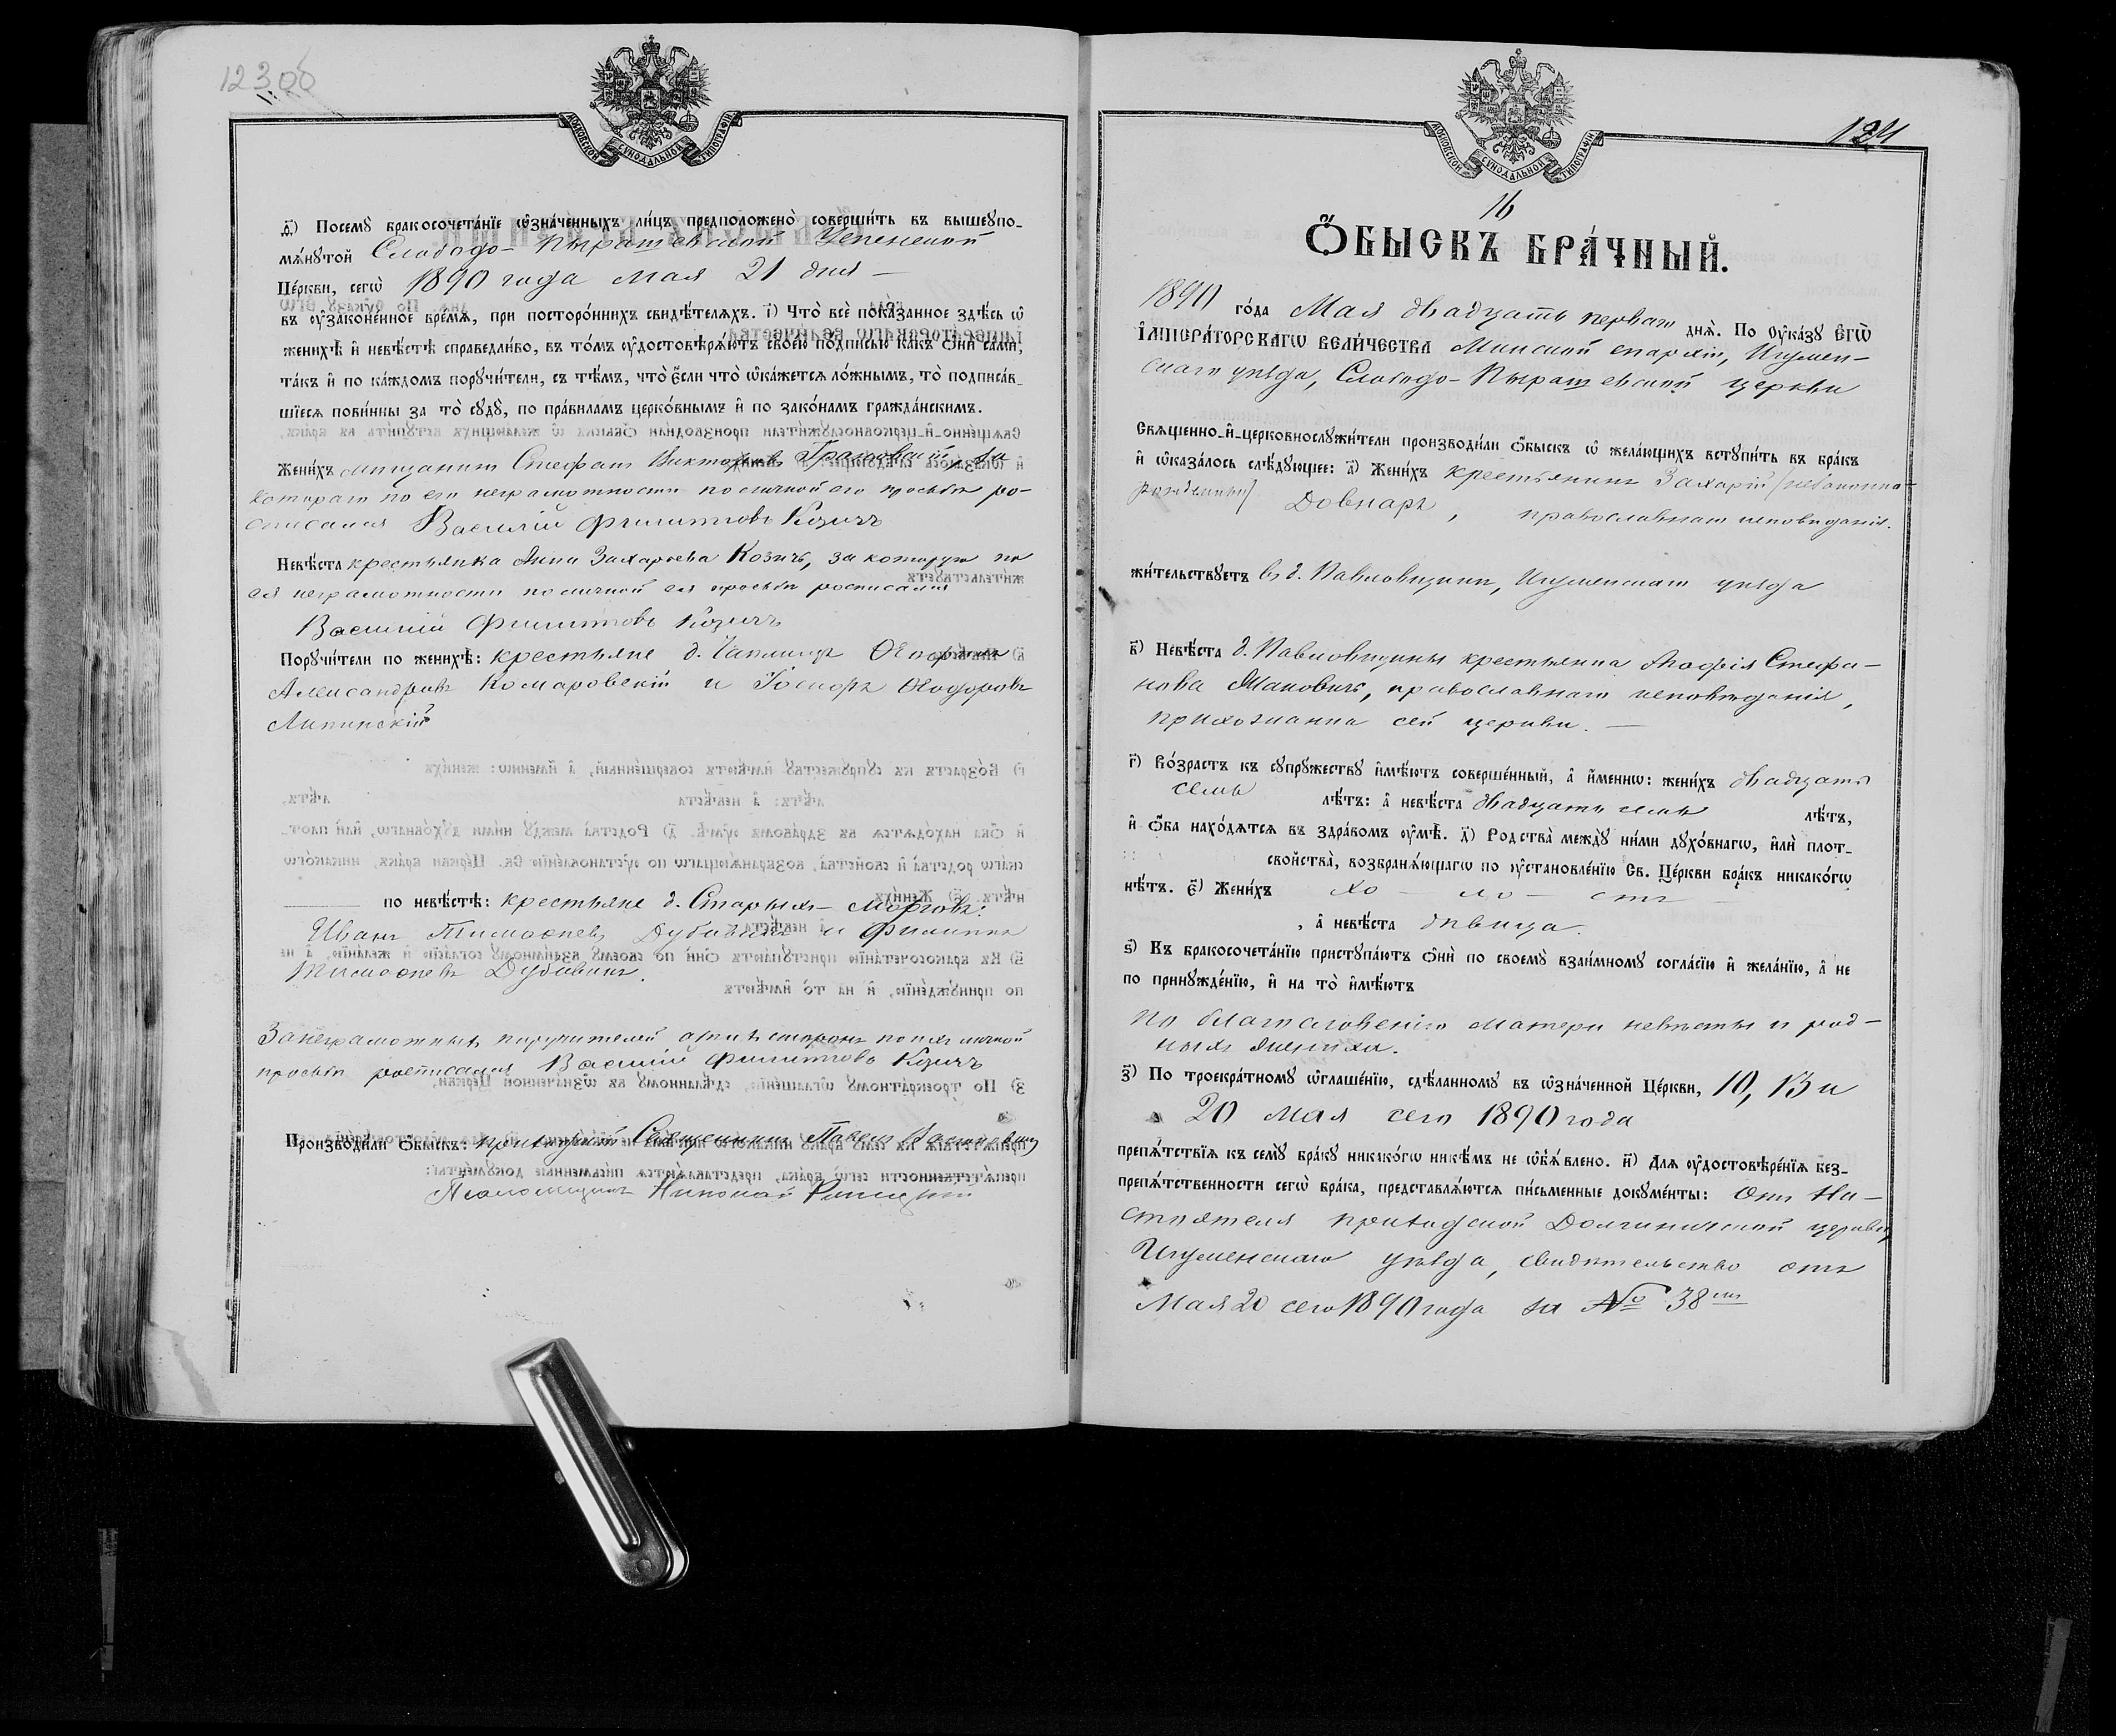 12300
МОСКОВСКОЙ СѴНОДАЛЬНОЙ ТИПОГРАФІИ
д҃і) Посемꙋ̀ бракосочета́нїе ѡ҆зна́ченныхъ ли́цъ предположено̀ соверши́ть въ вышеꙋпо-
мѧ́нꙋтой Слободо-Пырашевской Успенской
Це́ркви, сегѡ̀ 1890 года Мая 21 дня —
въ ᲂу҆зако́ненное вре́мѧ, при посторо́ннихъ свидѣ́телѧхъ. і҃) Что̀ всѐ пока́занное здѣ́сь ѡ҆
женихѣ̀ и҆ невѣ́стѣ справедли́во, въ то́мъ ᲂу҆достовѣрѧ́ютъ свое́ю по́дписью ка́къ ѻ҆нѝ са́ми,
та́къ и҆ по ка́ждомъ порꙋчи́тели, съ тѣ́мъ, что̀ є҆́сли что̀ ѡ҆ка́жетсѧ ло́жнымъ, то̀ подписа́в-
шїесѧ пови́нны за то̀ сꙋдꙋ̀, по пра́виламъ церко́внымъ и҆ по зако́намъ гражда́нскимъ.
Жени́хъ мещанинъ Стефанъ Викторовъ за
котораго по его неграмотности по личной его просьбѣ ро-
списался Василій Филиповъ Козичъ
Невѣ́ста крестьянка Анна Захарьева Козичъ, за которую по
ея неграмотности по личной ея просьбѣ росписался
Василій Филиповъ Козичъ
Порꙋчи́тели по женихѣ̀: крестьяне д.
Александровъ Комаровскій и Ѳеодоровъ
Липинскій
по невѣ́стѣ: крестьяне д. Старыхъ-Морговъ:
Иванъ Тимофеевъ и Филиппъ
Тимофеевъ
За неграмотныхъ поручителей обѣихъ сторонъ по ихъ личной
просьбѣ росписался Василій Филиповъ Козичъ
Производи́ли ѻ҆́быскъ: приходскій Священникъ Павелъ
Псаломщикъ Николай
МОСКОВСКОЙ СѴНОДАЛЬНОЙ ТИПОГРАФІИ
124
16
Ѻ҆́БЫСКЪ БРА́ЧНЫЙ.
1890 го́да Мая двадцать перваго днѧ̀. По ᲂу҆ка́зꙋ Є҆гѡ̀
І҆МПЕРА́ТОРСКАГѠ ВЕЛИ́ЧЕСТВА Минской епархіи, Игумен-
скаго уѣзда, Слободо-Пырашевской церкви
Свѧще́нно-и҆-церковнослꙋжи́тели производи́ли ѻ҆́быскъ ѡ҆ жела́ющихъ встꙋпи́ть въ бра́къ
и҆ ѡ҆каза́лось слѣ́дꙋющее: а҃) Жени́хъ крестьянинъ Захарій (незаконно-
рожденный) Довнаръ, православнаго исповѣданія.
жи́тельствꙋетъ въ д. Павловщинѣ, Игуменскаго уѣзда
в҃) Невѣ́ста д. Павловщины крестьянка Софія Стефа-
нова Жановичъ, православнаго исповѣданія,
прихожанка сей церкви. —
г҃) Во́зрастъ къ сꙋпрꙋ́жествꙋ и҆мѣ́ютъ соверше́нный, а҆ и҆́меннѡ: жени́хъ двадцать
семь лѣ́тъ: а҆ невѣ́ста двадцать семь лѣ́тъ,
и҆ ѻ҆́ба нахо́дѧтсѧ въ здра́вомъ ᲂу҆мѣ̀. д҃) Родства̀ междꙋ̀ ни́ми дꙋхо́внагѡ, и҆лѝ пло́т-
свойства̀, возбранѧ́ющагѡ по ᲂу҆становле́нїю Св. Це́ркви бра́къ никако́гѡ
нѣ́тъ. є҃) Жени́хъ хо — ло — стъ —
, а҆ невѣ́ста дѣвица.
ѕ҃) Къ бракосочета́нїю пристꙋпа́ютъ ѻ҆нѝ по своемꙋ̀ взаи́мномꙋ согла́сїю и҆ жела́нїю, а҆ не
по принꙋжде́нїю, и҆ на то̀ и҆мѣ́ютъ
по благословенію матери невѣсты и род-
ныхъ жениха.
з҃) По троекра́тномꙋ ѡ҆глаше́нїю, сдѣ́ланномꙋ въ ѡ҆зна́ченной Це́ркви, 10, 13 и
20 мая сего 1890 года
препѧ́тствїѧ къ семꙋ̀ бра́кꙋ никако́гѡ никѣ́мъ не ѡ҆б̾ѧ́влено. и҃) Длѧ ᲂу҆достовѣре́нїѧ без-
препѧ́тственности сегѡ̀ бра́ка, представлѧ́ютсѧ пи́сьменные докꙋме́нты: отъ На-
стоятеля приходской церкви,
Игуменскаго уѣзда, свидѣтельство отъ
Мая 20 сего 1890 года за № 38мъ